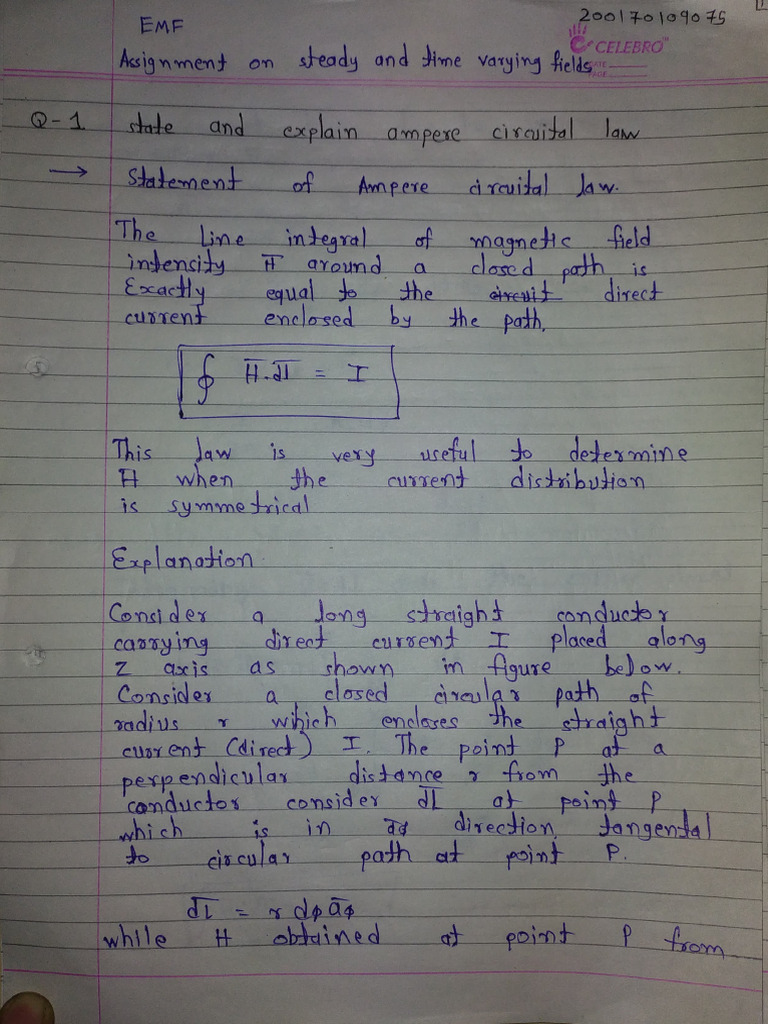 EMF
200170109075
CELEBRO
DATE
PAGE
Assignment on steady and time varying fields
Q-1 state and explain ampere circuital law
→ Statement of Ampere circuital law.
The Line integral of magnetic field
intensity H̅ around a closed path is
Exactly equal to the circuit direct
current enclosed by the path.
∮ H̅.dl̅ = I
This law is very useful to determine
H̅ when the current distribution
is symmetrical
Explanation
Consider a long straight conductor
carrying direct current I placed along
z axis as shown in figure below.
Consider a closed circular path of
radius r which encloses the straight
current (direct) I. The point P at a
perpendicular distance r from the
conductor consider dL̅ at point P
which is in direction, tangental
to circular path at point P.
dL̅ = r dϕ a̅ϕ
while H̅ obtained at point P from